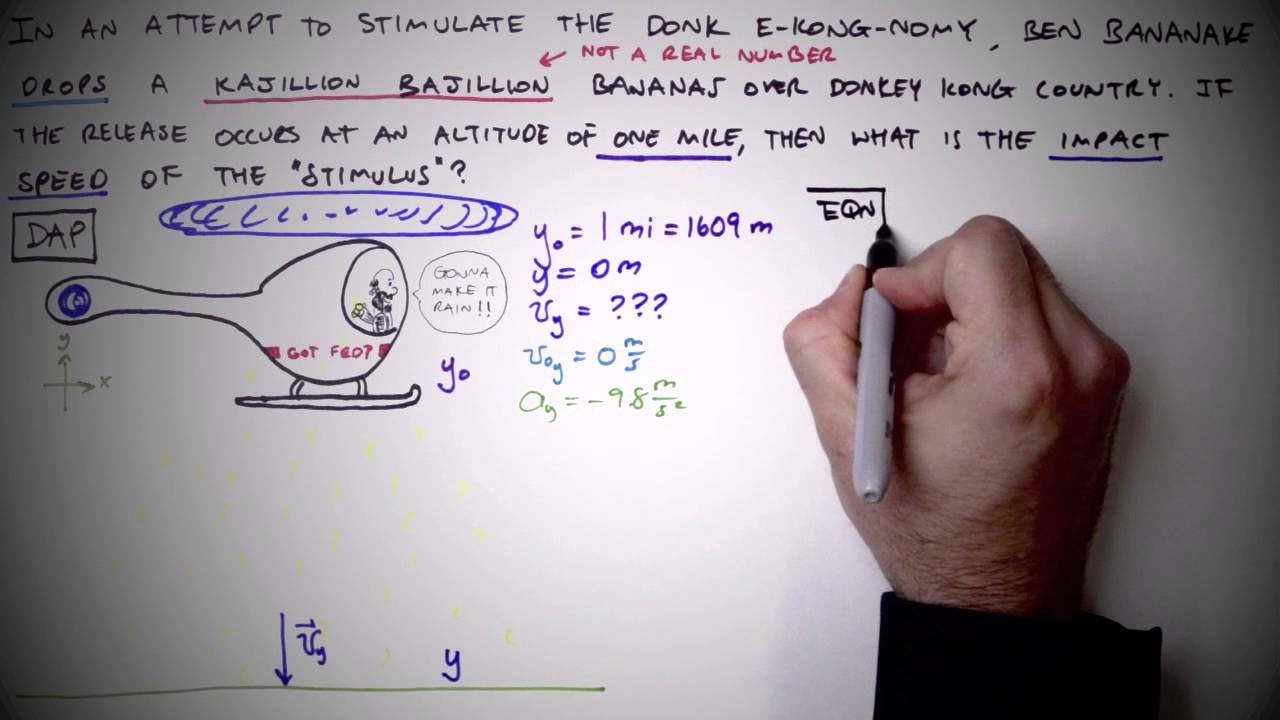 IN AN ATTEMPT TO STIMULATE THE DONK E-KONG-NOMY, BEN BANANAKE
← NOT A REAL NUMBER
DROPS A KAJILLION BAJILLION BANANAS OVER DONKEY KONG COUNTRY. IF
THE RELEASE OCCURS AT AN ALTITUDE OF ONE MILE, THEN WHAT IS THE IMPACT
SPEED OF THE "STIMULUS"?
DAP
GONNA
MAKE IT
RAIN!!
GOT FED?
y
x
y₀
y₀ = 1 mi = 1609 m
y = 0 m
v_y = ???
v₀y = 0 m/s
a_y = -9.8 m/s²
EQN
v⃗_y
y